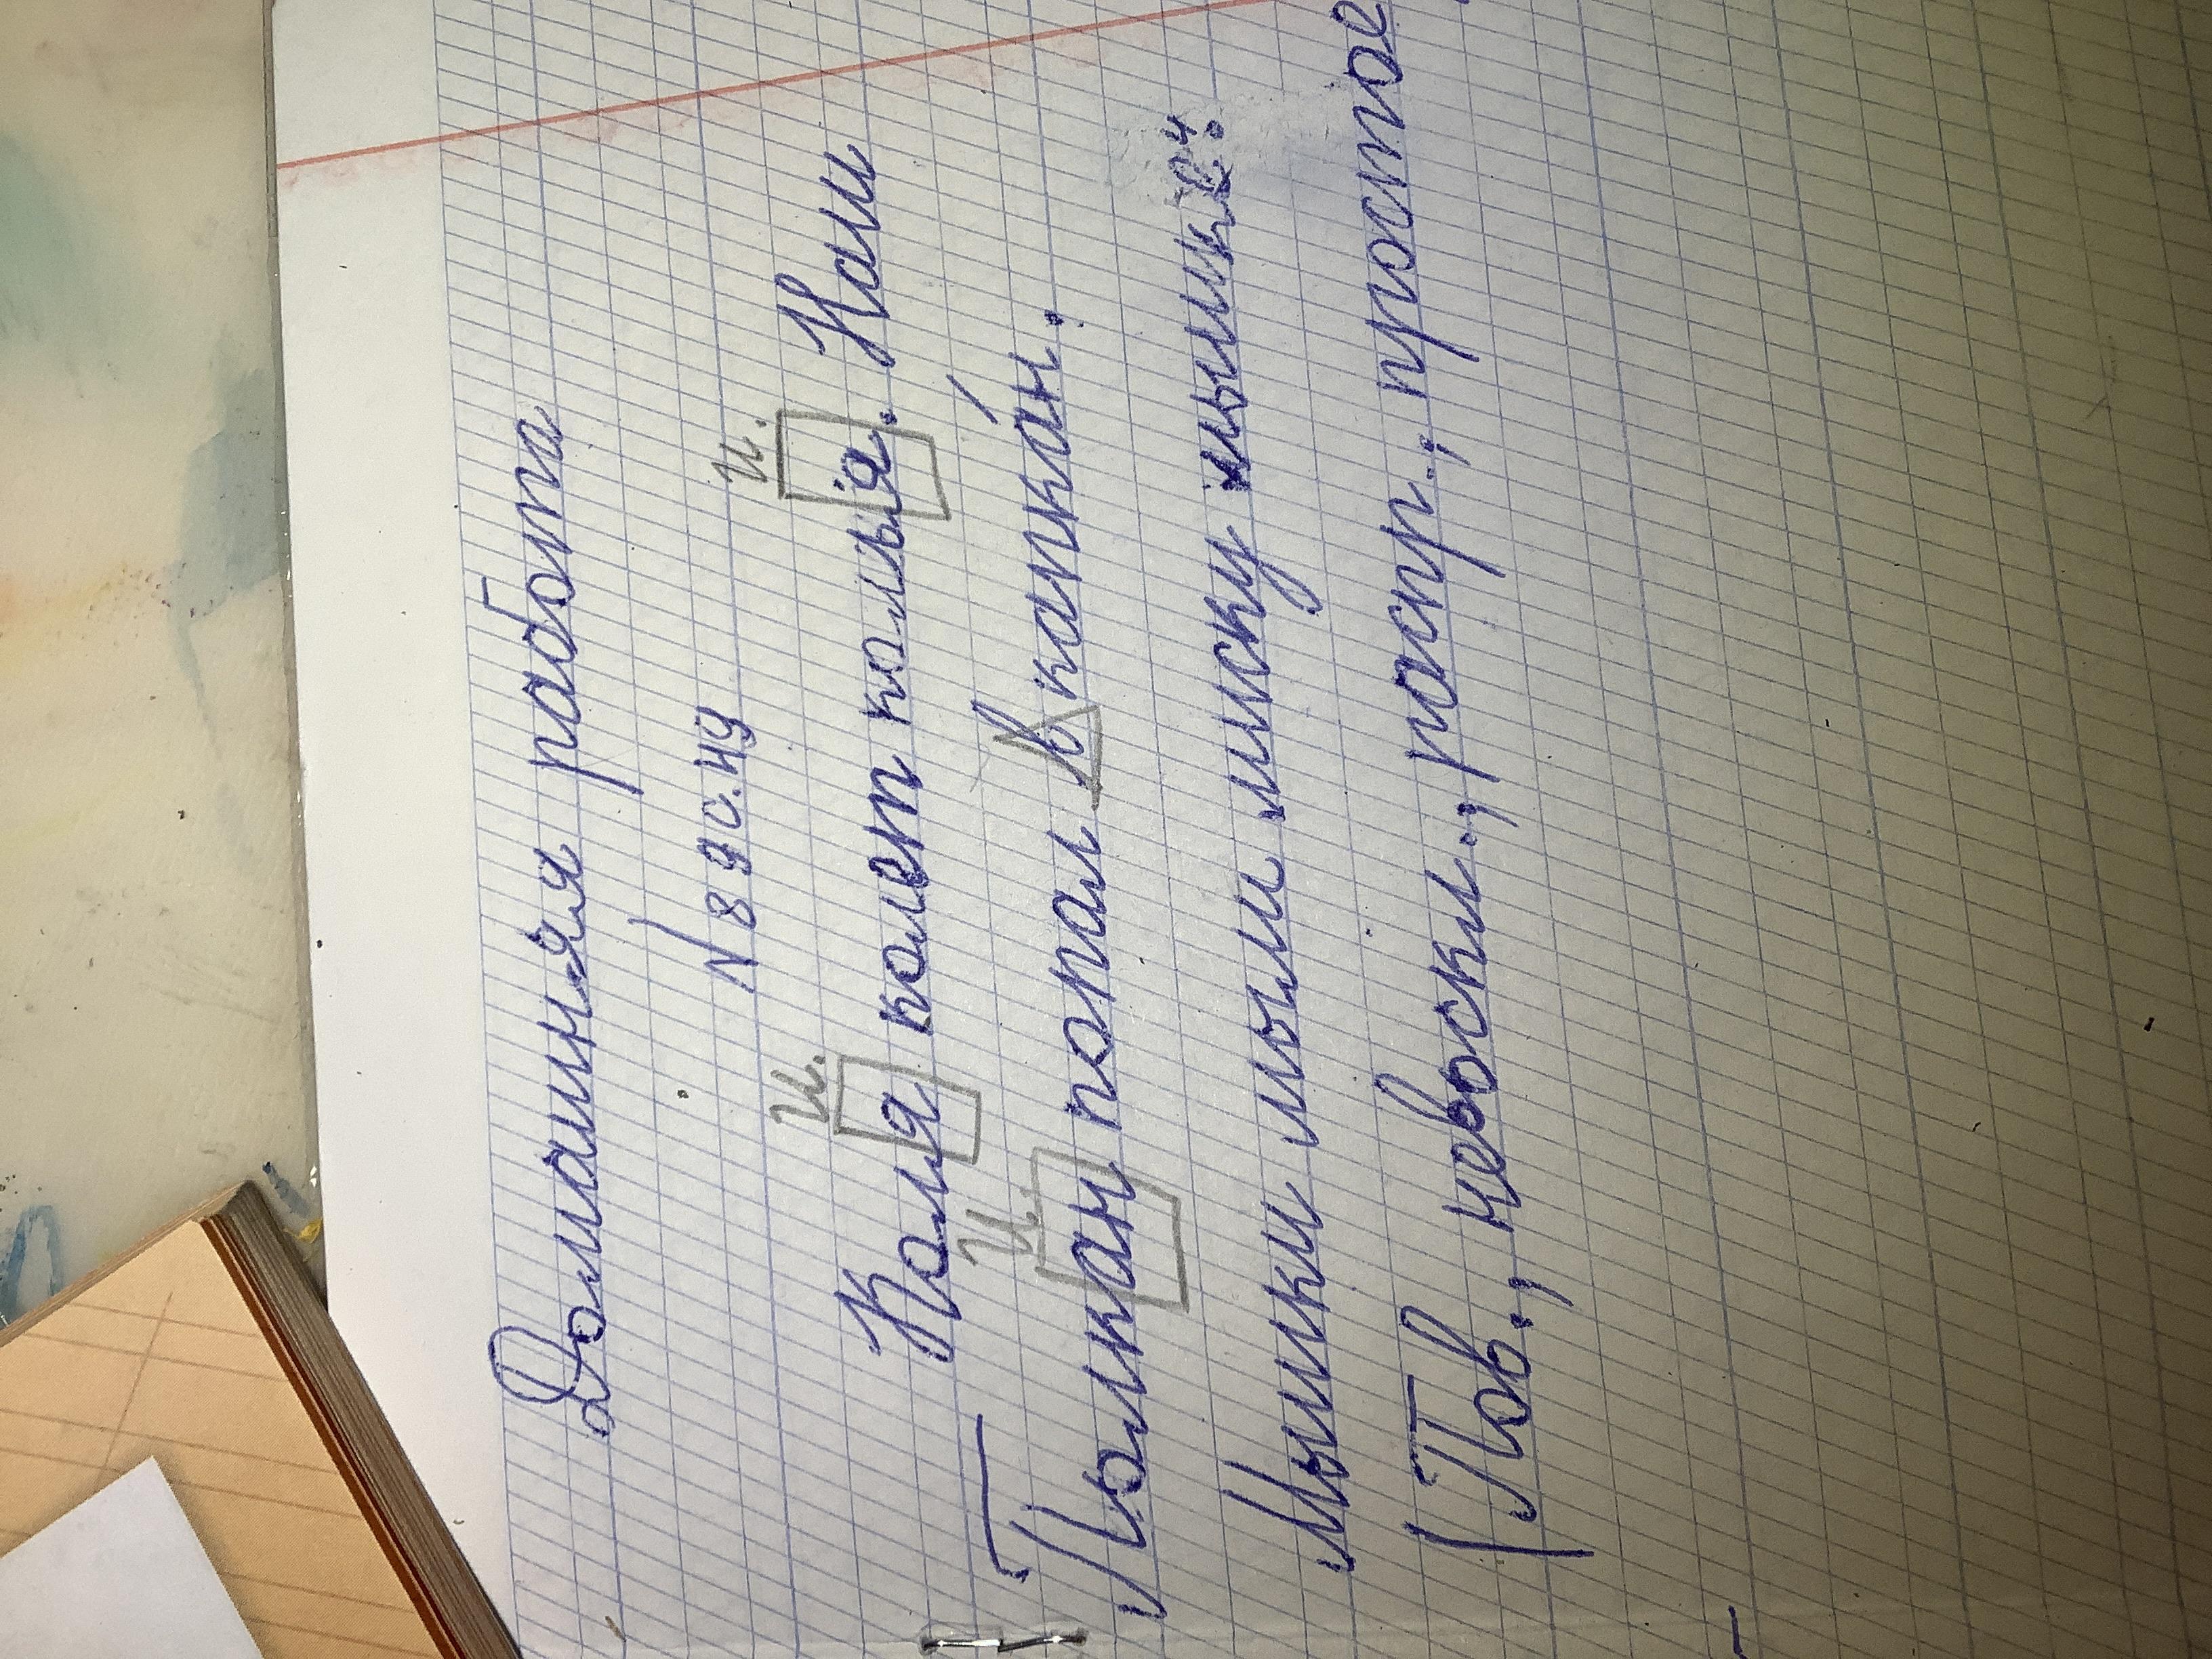 Домашняя работа
N 89 с. 49
и. и.
Коля колет колья. Наш
и.
Полкан попал в капкан.
Мышки мыли миску мышке⁴.
(Пов., невоскл., распр., простое